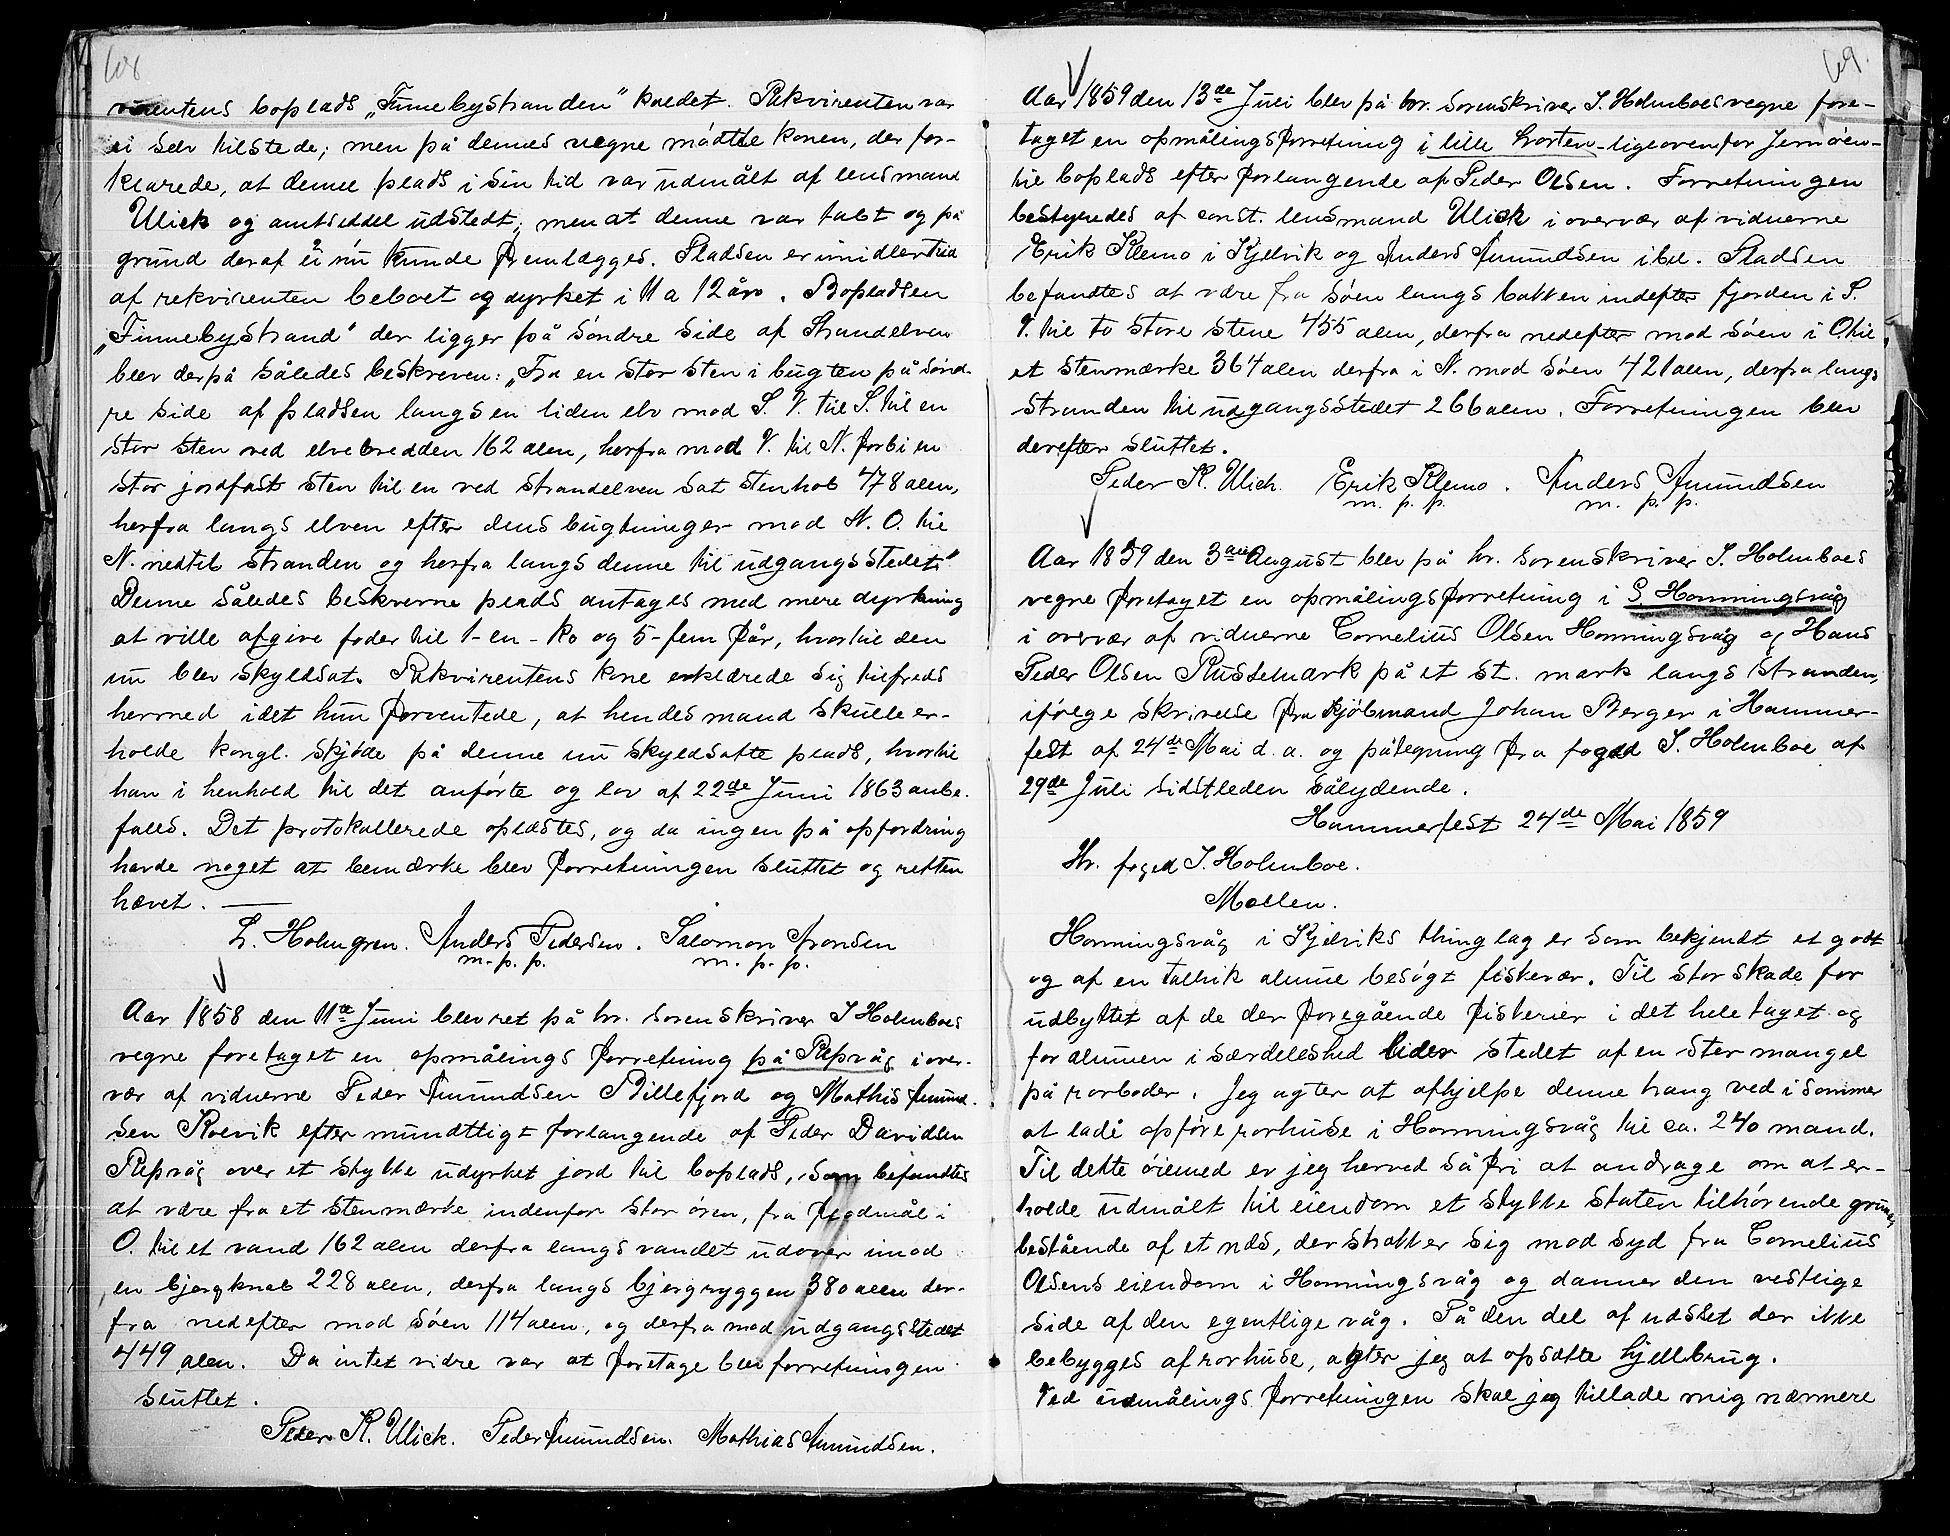 68
virentens boplads „Finnebystranden" kaldet. Rekvirenten var
ei selv tilstede; men på dennes vegne mødtte konen, der for-
klarede, at denne plads i sin tid var udmålt af lensmand
Ulich og amtseddel udstedt; men at denne var tabt og på
grund deraf ei nu kunde fremlægges. Pladsen er imidlertid
af rekvirenten beboet og dyrket i 11 a 12 år. Bopladsen
„Finnebystrand" der ligger på søndre side af Strandelven
blev derpå således beskreven: „Fra en stor sten i bugten på sønd-
re side af pladsen langs en liden elv mod S. V. til S. til en
stor sten ved elvebredden 162 alen, herfra mod V. til N. forbi en
stor jordfast sten til en ved strandelven sat stenhob 478 alen,
herfra langs elven efter dens bugtninger mod N. O. til
N. nedtil stranden og herfra langs denne til udgangsstedet."
Denne således beskrevne plads antages med mere dyrkning
at ville afgive foder til 1-en-ko og 5-fem får, hvortil den
nu blev skyldsat. Rekvirentens kone erklærede sig tilfreds
hermed idet hun forventede, at hendes mand skulle er-
holde kongl. skjøde på denne nu skyldsatte plads, hvortil
han i henhold til det anførte og lov af 22de Juni 1863 anbe-
fales. Det protokollerede oplæstes, og da ingen på opfordring
havde noget at bemærke blev forretningen sluttet og retten
hævet.
L. Holmgren. Anders Pedersen. Salomon Aronsen
m. p. p. m. p. p.
Aar 1858 den 11te Juni blev ret på hr. sorenskriver J Holmboes
vegne foretaget en opmålings forretning på Repvåg i over-
vær af vidnerne Peder Amundsen Billefjord og Mathis Amund-
sen Kolvik efter mundtligt forlangende af Peder Davidsen
Repvåg over et stykke udyrket jord til boplads, som befandtes
at være fra et stenmærke indenfor stor øren, fra flodmål i
O. til et vand 162 alen derfra langs vandet udover imod
en bjergknat 228 alen, derfra langs bjergryggen 380 alen der-
fra nedefter mod søen 114 alen, og derfra mod udgangsstedet
449 alen. Da intet vidre var at foretage blev forretningen
sluttet.
Peder K. Ulich. Peder Amundsen. Mathias Amundsen.
69.
Aar 1859 den 13de Juli blev på hr. sorenskriver J. Holmboes vegne fore-
taget en opmålingsforretning i lille Porten - ligeovenfor Jernøen -
til boplads efter forlangende af Peder Olsen. Forretningen
bestyredes af const. lensmand Ulich i overvær af vidnerne
Erik Klemo i Kjelvik og Anders Amundsen ibd. Pladsen
befandtes at være fra søen langs bakken indefter fjorden i S.
V. til to store stene 455 alen, derfra nedefter mod søen i O. til
et stenmærke 364 alen derfra i N. mod søen 421 alen, derfra langs
stranden til udgangsstedet 266 alen. Forretningen blev
derefter sluttet.
Peder K. Ulich. Erik Klemo. Anders Amundsen
m. p. p. m. p. p.
Aar 1859 den 3die August blev på hr. sorenskriver J. Holmboes
vegne foretaget en opmålingsforretning i S. Honningsvåg
i overvær af vidnerne Cornelius Olsen Honningsvåg og Hans
Peder Olsen Russelmark på et st. mark langs stranden,
ifølge skrivelse fra kjøbmand Johan Berger i Hammer-
fest af 24de Mai d. a. og påtegning fra foged J. Holmboe af
29de Juli sidstleden sålydende.
Hammerfest 24de Mai 1859
Hr. foged J. Holmboe.
Mollen.
Honningsvåg i Kjelviks thinglag er som bekjendt et godt
og af en talrik almue besøgt fiskevær. Til stor skade for
udbyttet af de der foregående fiskerier i det hele taget og
for almuen i særdeleshed lider stedet af en stor mangel
på rorboder. Jeg agter at afhjelpe denne trang ved i sommer
at lade opføre rorhuse i Honningsvåg til ca. 240 mand.
Til dette øiemed er jeg herved så fri at andrage om at er-
holde udmålt til eiendom et stykke staten tilhørende grund,
bestående af et næs, der strækker sig mod syd fra Cornelius
Olsens eiendom i Honningsvåg og danner den vestlige
side af den egentlige våg. På den del af udstet der ikke
bebygges af rorhuse, agter jeg at opsætte hjellbrug.
Ved udmålings forretningen skal jeg tillade mig nærmere